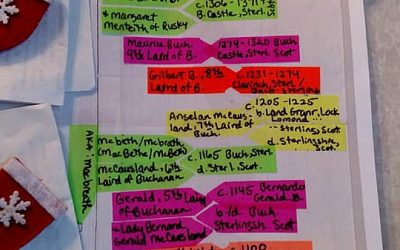 c.1306-1371
& margaret B. Castle, Sterl. Scot
menteith of Rusky
Maurice Buch. 1274-1320 Buch
9th Laird of B. Castle, Sterl Scot
Gilbert B., 8th c.1231-1274,
Laird of B. Clarinch, Sterl/
c.1205-1225
Anselan McCaus- b. Land Granr, Lock
land, 7th Laird of Lomond
Buch. Sterling, Scot
d. Sterlingshire, Scot.
AKA: Macbeath
Mcbeth/mcbroth
(MacBeth/McBeth) c.1165 Buch, Sterl
McCausland, 6th d. Sterl, Scot
Laird of Buchanan
Gerald, 5th Laird c.1145 Bernardo
of Buchanan Gerald B.
b/d Buch.
& Lady Bernard Sterlingsh. Scot
Gerald McCausland
c.1100